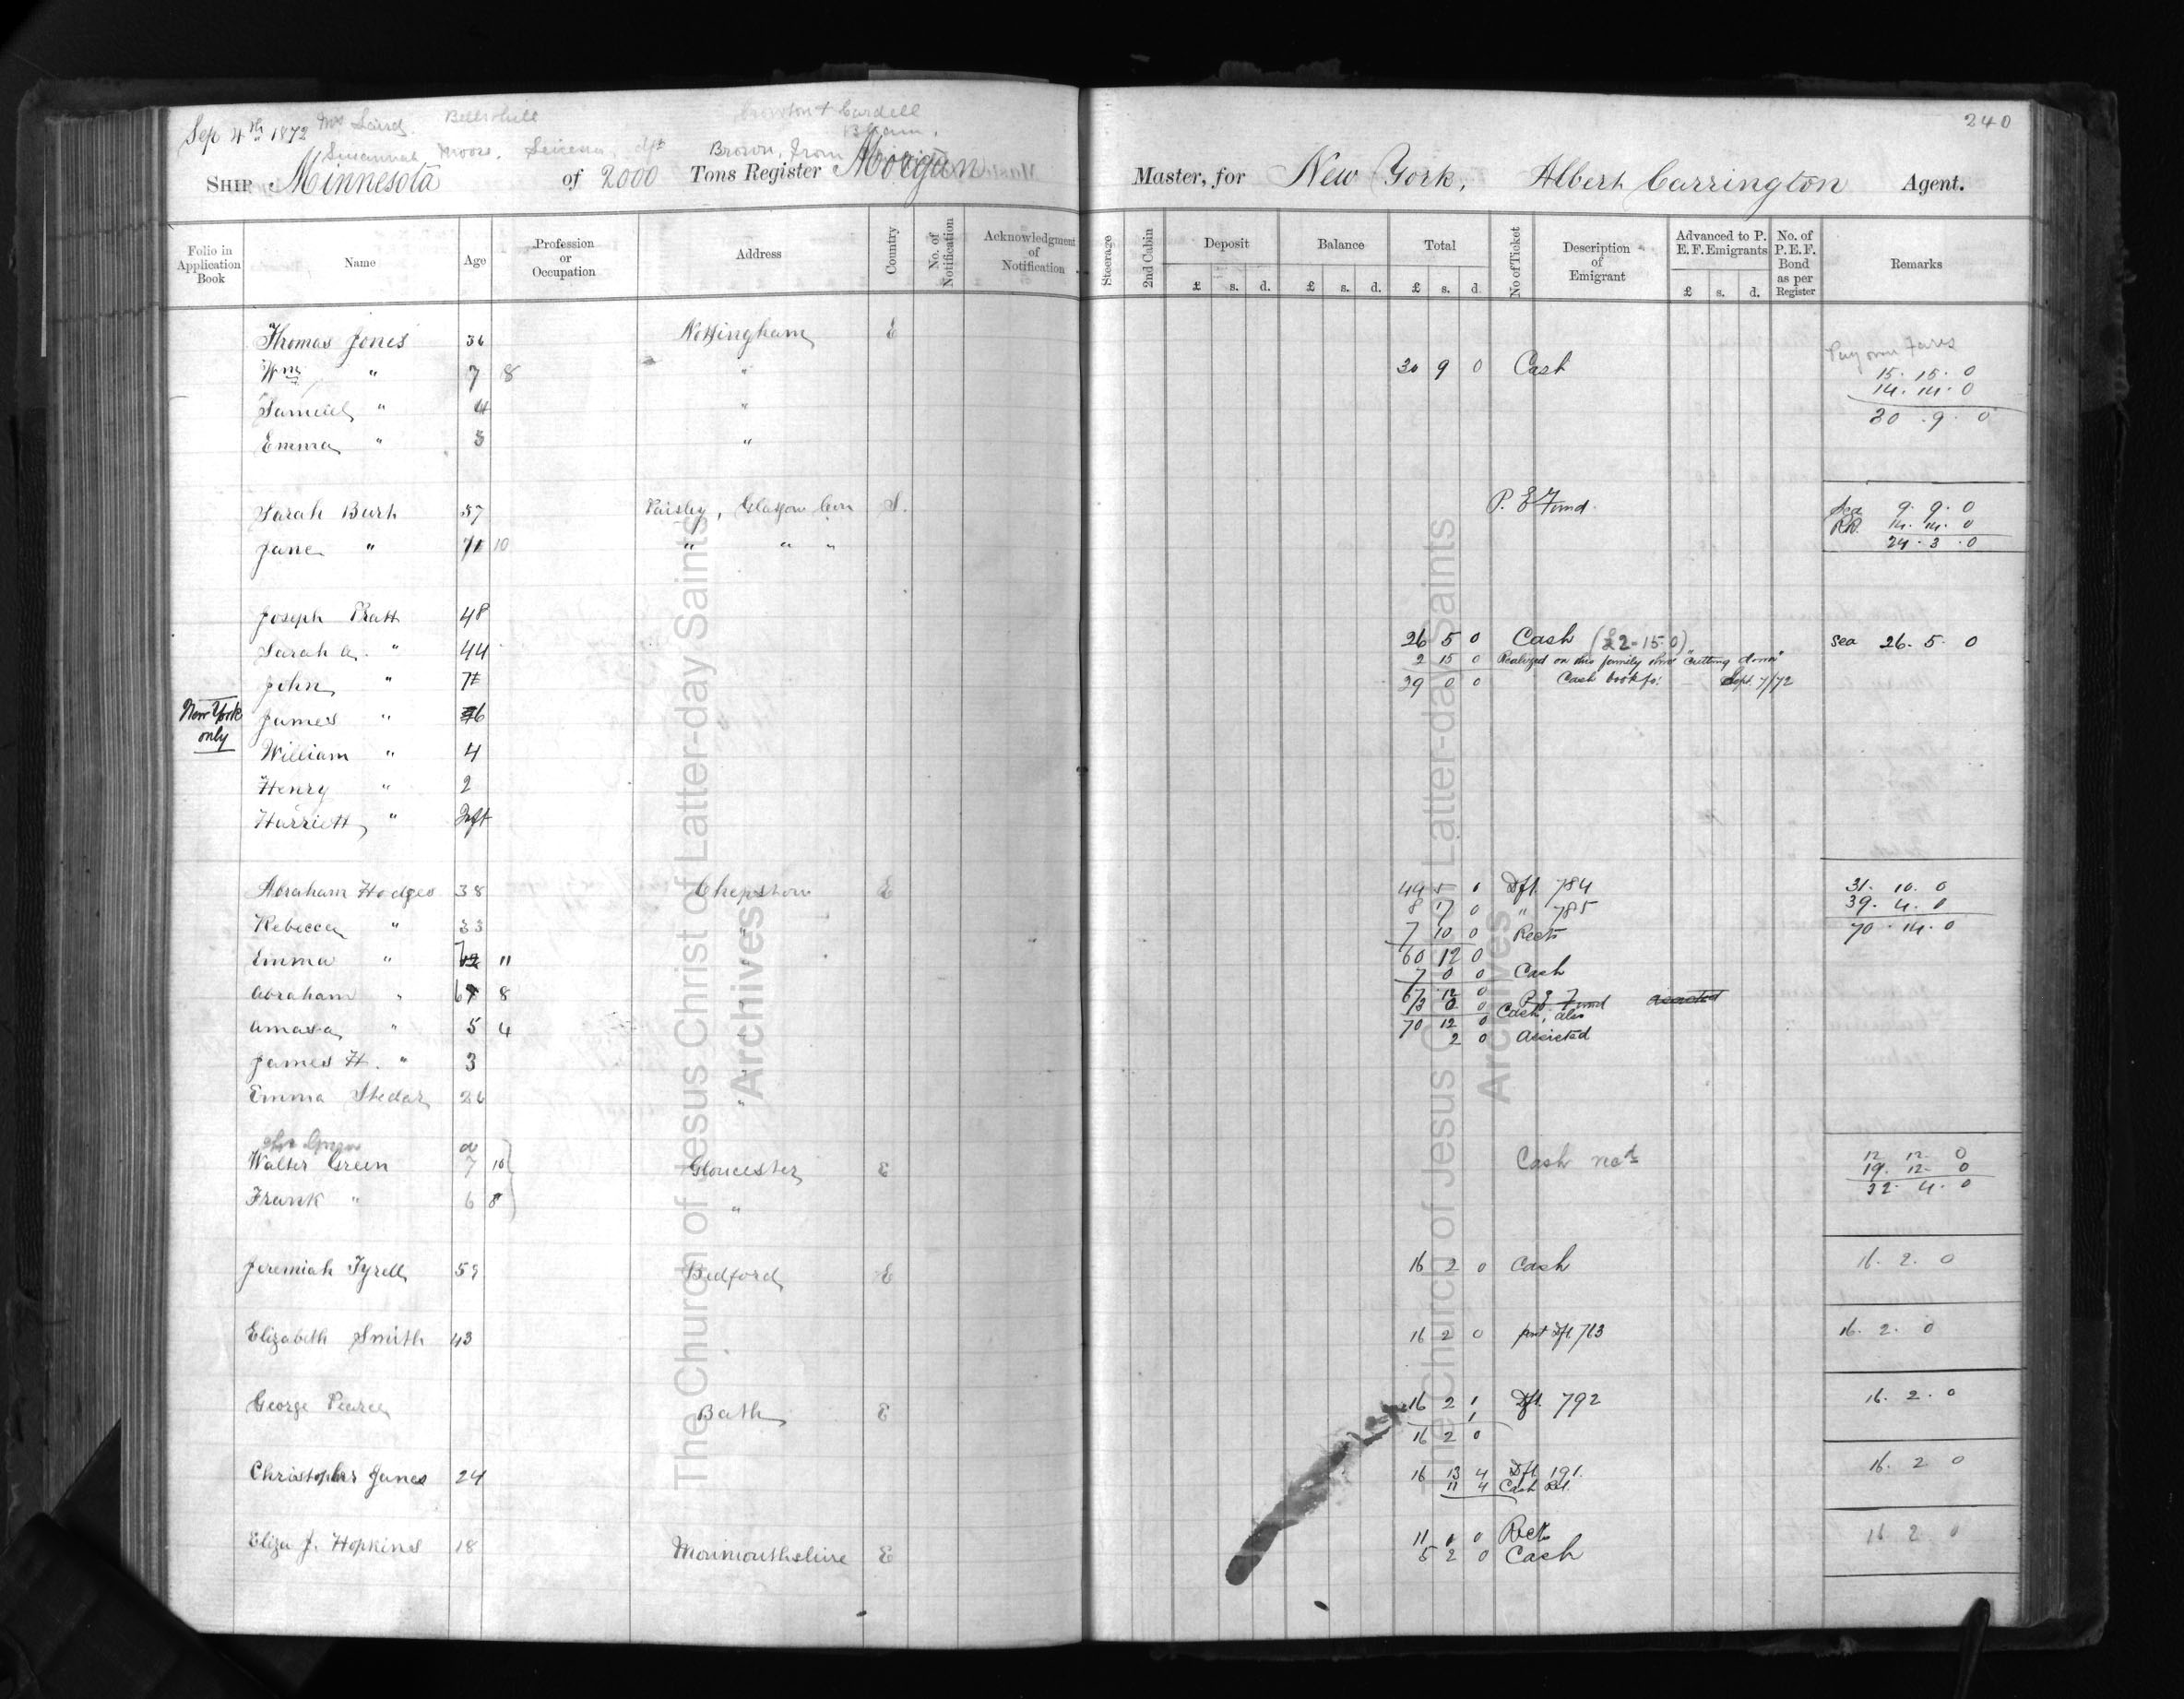 240
Sep 4th 1872 Mrs Laird. Bellshill
Susannah Moore, Brown, from
Ship Minnesota of 2000 Tons Register Morgan Master, for New York, Albert Carrington Agent.
Folio in Application Book Name Age Profession or Occupation Address Country No. of Notification Acknowledgment of Notification Steerage 2nd Cabin Deposit Balance Total No of Ticket Description of Emigrant Advanced to P. E. F. Emigrants No. of P. E. F. Bond as per Register Remarks
£ s. d. £ s. d. £ s. d. £ s. d.
Thomas Jones 36 Nottingham E Pay own Fares
Wm " 7 8 " 30 9 0 Cash 15. 15. 0
14. 14. 0
Samuel " 4 " 30. 9. 0
Emma " 3 "
Sarah Burt 57 Paisley, Glasgow Con S. P. E Fund. Sea 9. 9. 0
RR. 14. 14. 0
Jane " 71 10 " " " 24. 3. 0
Joseph Pratt 48
Sarah A. " 44 26 5 0 Cash (£2-15.0) Sea 26. 5. 0
2 15 0 Realized on this family thro "Cutting down"
John " 7 29 0 0 Cash book fo: Sept. 7/72
New York only James " 6
William " 4
Henry " 2
Harriett " Inft
Abraham Hodges 38 Chepstow E 49 5 1 Dft. 784 31. 10. 0
8 17 0 " 785 39. 4. 0
Rebecca " 33 7 10 0 Rects 70. 14. 0
Emma " 12 11 60 12 0
7 0 0 Cash
Abraham " 6 8 67 12 0
3 0 0 P. E Fund assisted
Cash, also
Amasa " 5 4 70 12 0
2 0 Assisted
James H. " 3
Emma Shedar 26 "
Walter Green 7 10 Gloucester E Cash recd 12 12 0
19. 12- 0
Frank " 6 8 " 32. 4. 0
Jeremiah Tyrell 59 Bedford E 16 2 0 Cash 16. 2. 0
Elizabeth Smith 43 16 2 0 part Dft. 713 16. 2. 0
George Pearce Bath E 16 2 1 Dft. 792 16. 2. 0
1
16 2 0
Christopher Janes 24 16 13 4 Dft. 191. 16. 2 0
11 4 Cash Rd.
Eliza J. Hopkins 18 Monmouthshire E 11 0 0 Rects 16 2 0
5 2 0 Cash
The Church of Jesus Christ of Latter-day Saints
Archives
The Church of Jesus Christ of Latter-day Saints
Archives